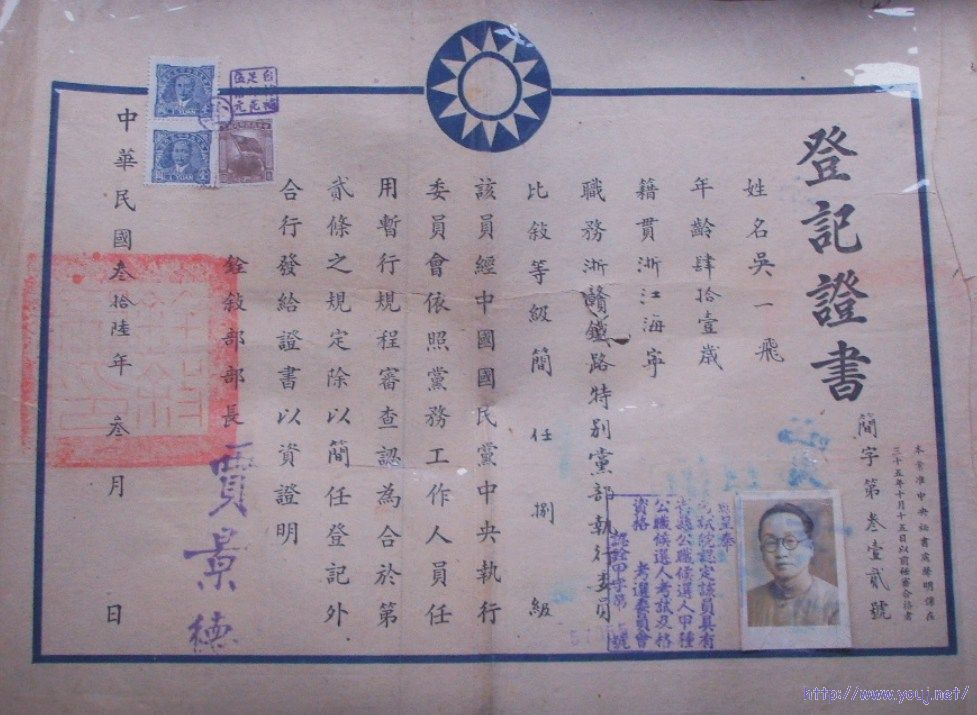 登記證書
簡字第叁壹貳號
姓名吳一飛
年齡肆拾壹歲
籍貫浙江海寧
職務浙贛鐵路特別黨部執行委員
比敘等級簡任捌級
該員經中國國民黨中央執行
委員會依照黨務工作人員任
用暫行規程審查認為合於第
貳條之規定除以簡任登記外
合行發給證書以資證明
銓敘部部長
賈景德
中華民國叁拾陸年叁月日
本案准中央秘書處聲明係在
三十五年十月十五日以前任審合格者
試院認定該員具有
縣公職候選人甲種
公職候選人考試及格
資格 考選委員會
認證甲字第 號
1 YUAN
1 YUAN
http://www.youj.net/